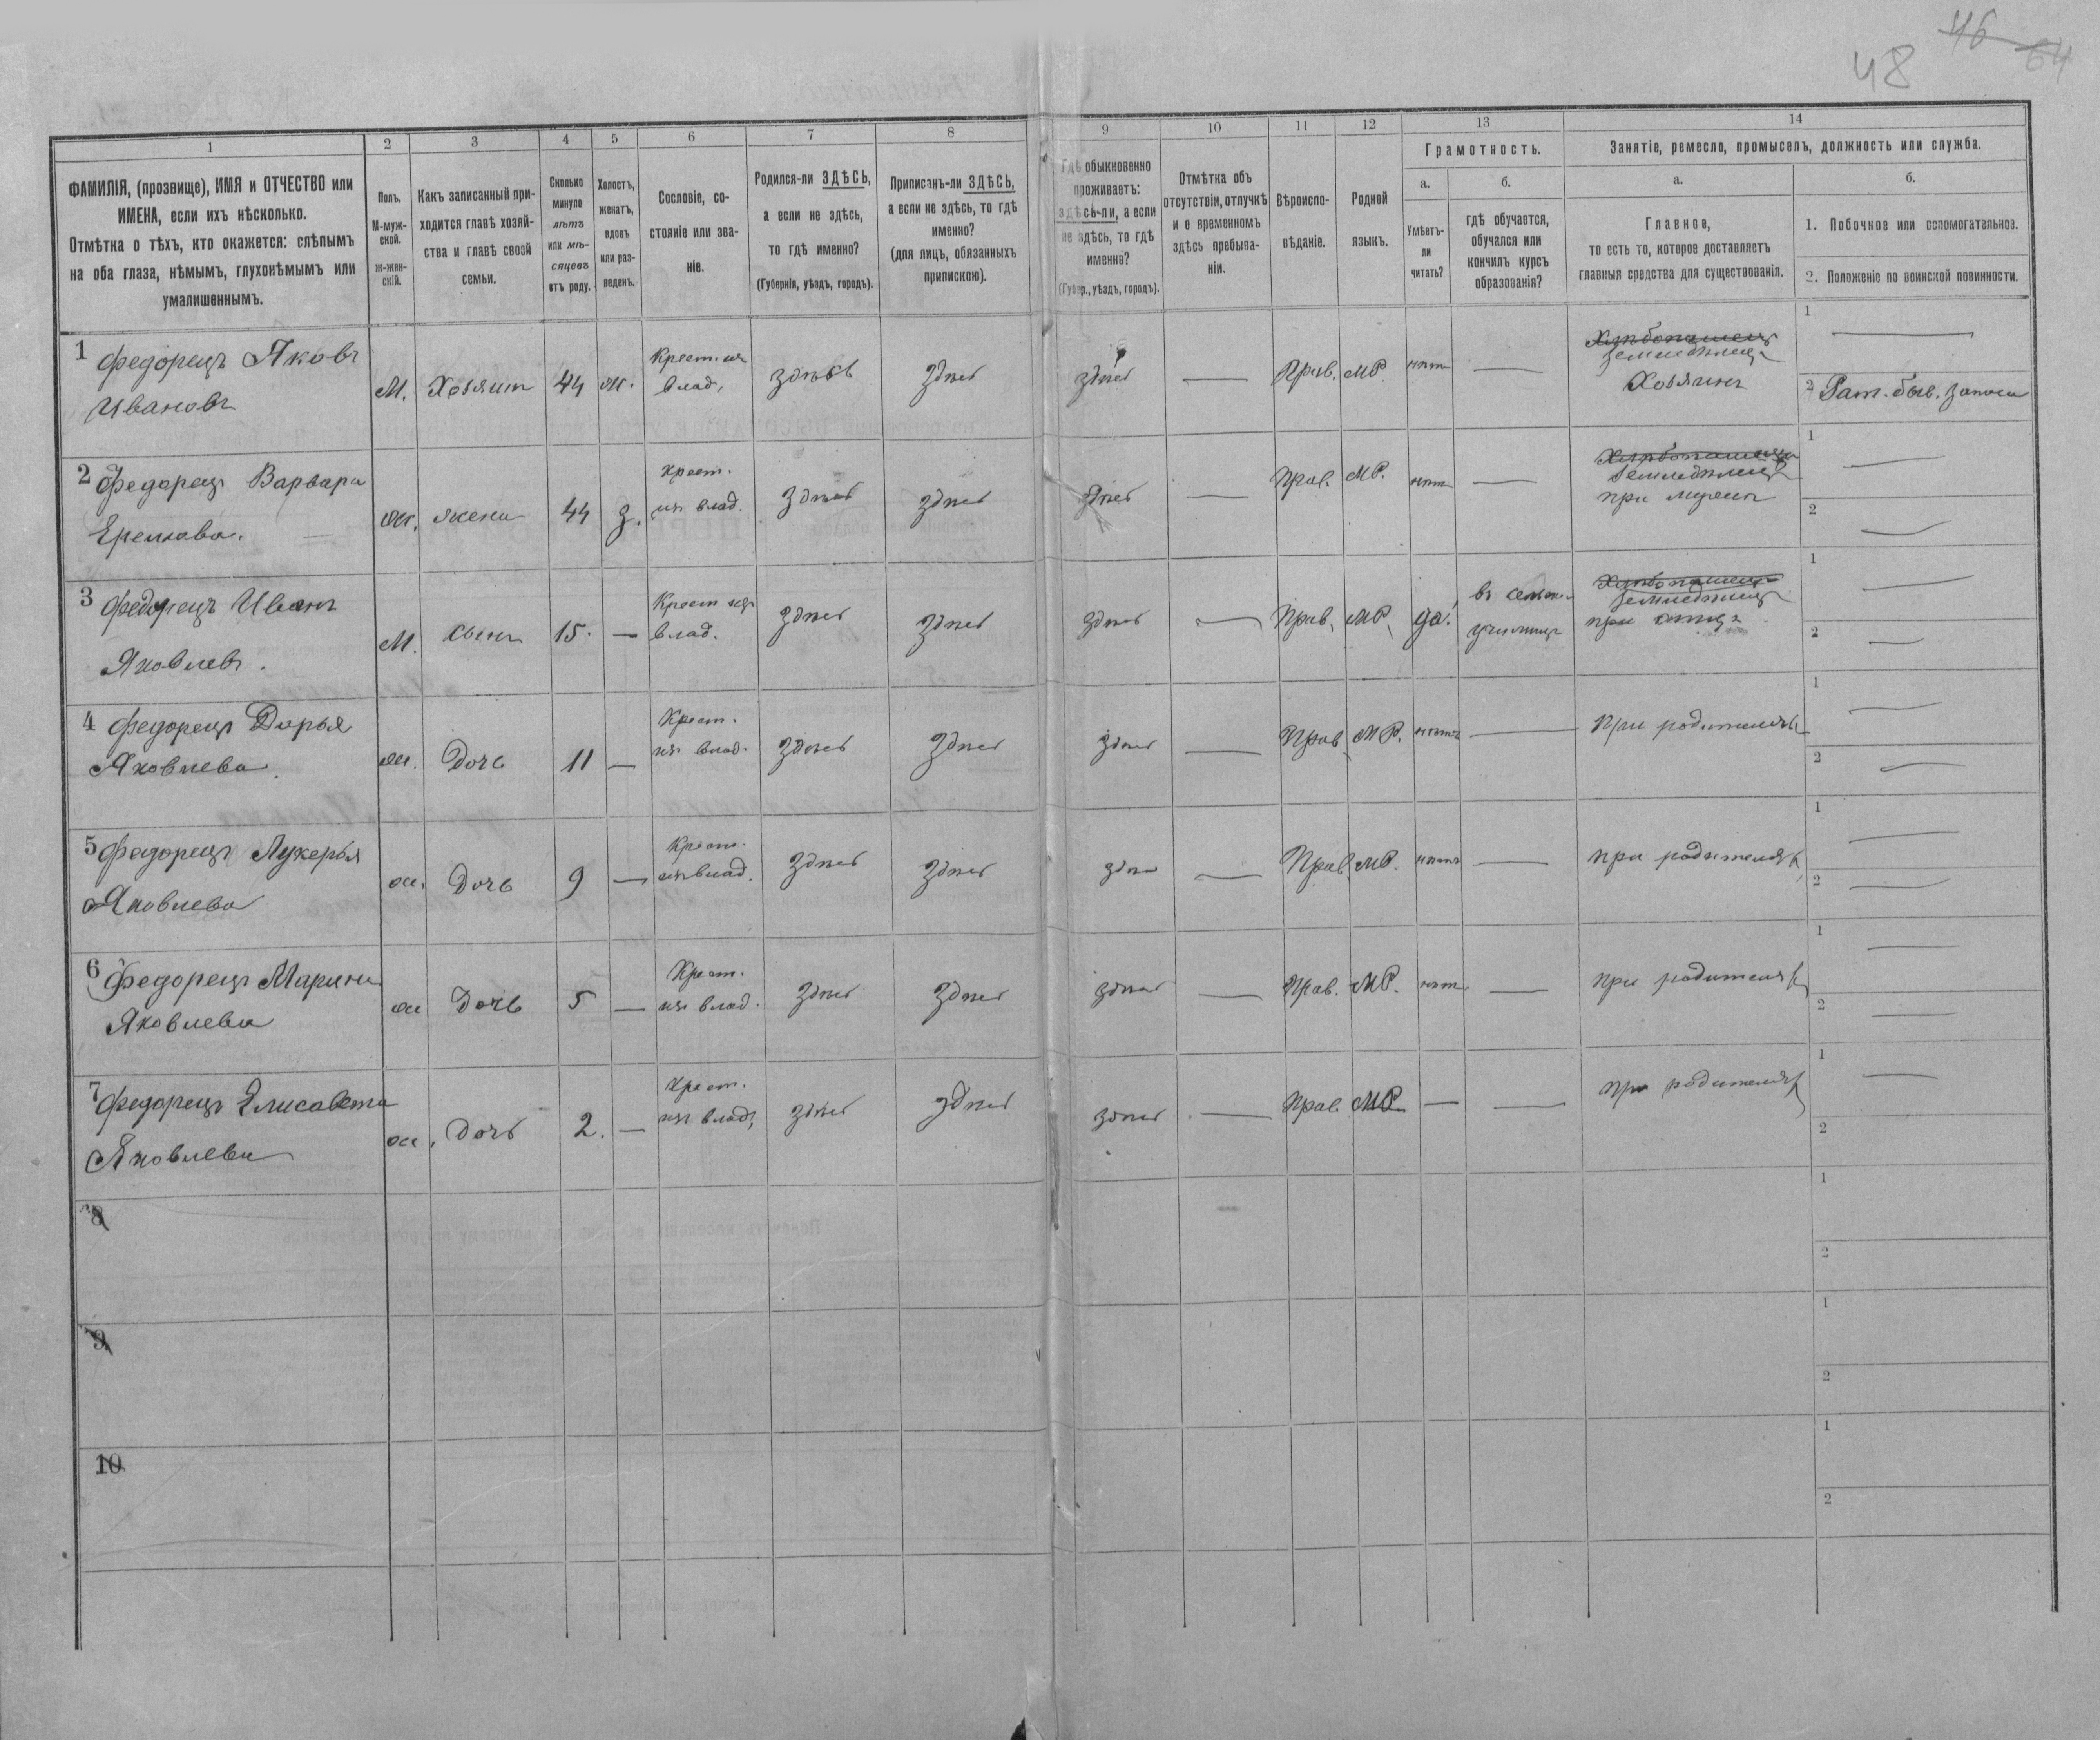 48 46 64
1
2
3
4
5
6
7
8
9
10
11
12
13
14
ФАМИЛІЯ, (прозвище), ИМЯ и ОТЧЕСТВО или
ИМЕНА, если ихъ нѣсколько.
Отмѣтка о тѣхъ, кто окажется: слѣпымъ
на оба глаза, нѣмымъ, глухонѣмымъ или
умалишеннымъ.
Полъ.
М-муж-
ской.
Ж-жен-
скій.
Какъ записанный при-
ходится главѣ хозяй-
ства и главѣ своей
семьи.
Сколько
минуло
лѣтъ
или мѣ-
сяцевъ
отъ роду.
Холостъ,
женатъ,
вдовъ
или раз-
веденъ.
Сословіе, со-
стояніе или зва-
ніе.
Родился-ли ЗДѢСЬ,
а если не здѣсь,
то гдѣ именно?
(Губернія, уѣздъ, городъ).
Приписанъ-ли ЗДѢСЬ,
а если не здѣсь, то гдѣ
именно?
(для лицъ, обязанныхъ
припискою).
Гдѣ обыкновенно
проживаетъ:
здѣсь-ли, а если
не здѣсь, то гдѣ
именно?
(Губер., уѣздъ, городъ).
Отмѣтка объ
отсутствіи, отлучкѣ
и о временномъ
здѣсь пребыва-
ніи.
Вѣроиспо-
вѣданіе.
Родной
языкъ.
Грамотность.
а.
Умѣетъ-
ли
читать?
б.
гдѣ обучается,
обучался или
кончилъ курсъ
образованія?
Занятіе, ремесло, промыселъ, должность или служба.
а.
Главное,
то есть то, которое доставляетъ
главныя средства для существованія.
б.
1. Побочное или вспомогательное.
2. Положеніе по воинской повинности.
1 Федорецъ Яковъ
Ивановъ
М. Хозяинъ 44 ж. Крест. изъ
влад. здѣсь здѣсь здѣсь — Прав. МР. нѣтъ —
Хлѣбопашецъ
Земледѣлецъ
Хозяинъ
1 —
2 Рат. быв. запаса
2 Федорецъ Варвара
ж. жена 44 з. Крест.
изъ влад. здѣсь здѣсь здѣсь — Прав. МР. нѣтъ —
Земледѣлецъ
при мужѣ
1 —
2 —
3 Федорецъ Иванъ
Яковлевъ.
М. сынъ 15. — Крест изъ
влад. здѣсь здѣсь здѣсь — Прав. МР. да!
училищѣ
Хлѣбопашецъ
Земледѣлецъ
при отцѣ
1 —
2 —
4 Федорецъ Дарья
Яковлева.
ж. Дочь 11 — Крест.
изъ влад. здѣсь здѣсь здѣсь — Прав. МР. нѣтъ — При родителяхъ
1 —
2 —
5 Федорецъ Лукерья
Яковлева
ж. Дочь 9 — Крест.
изъ влад. здѣсь здѣсь здѣсь — Прав. МР. нѣтъ — при родителяхъ
1 —
2 —
6 Федорецъ Марина
Яковлева
ж Дочь 5 — Крест.
изъ влад. здѣсь здѣсь здѣсь — Прав. МР. нѣтъ — при родителяхъ
1 —
2 —
7 Федорецъ Елисавета
Яковлева
ж. Дочь 2. — Крест.
изъ влад. здѣсь здѣсь здѣсь — Прав. МР. — — при родителяхъ
1 —
2
8
1
2
9
1
2
10
1
2